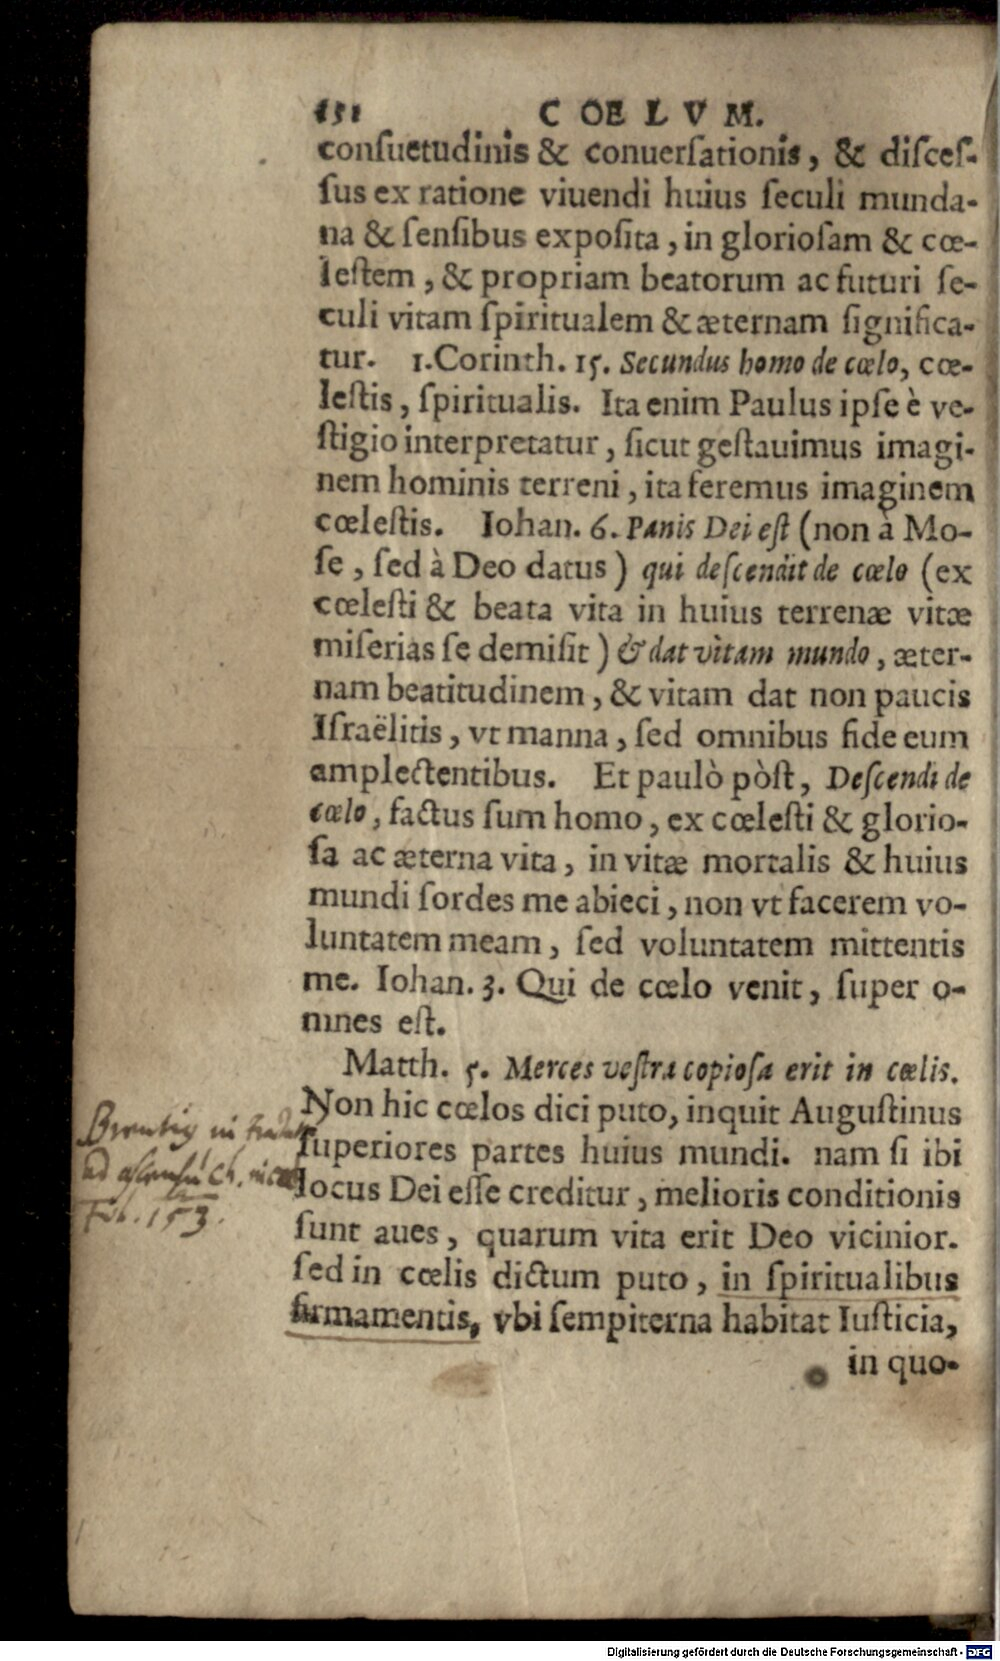 151 COELVM.
conſuetudinis & conuerſationis, & diſceſ-
ſus ex ratione viuendi huius ſeculi munda-
na & ſenſibus expoſita, in glorioſam & cœ-
leſtem, & propriam beatorum ac futuri ſe-
culi vitam ſpiritualem & æternam ſignifica-
tur. 1. Corinth. 15. Secundus homo de cœlo, cœ-
leſtis, ſpiritualis. Ita enim Paulus ipſe è ve-
ſtigio interpretatur, ſicut geſtauimus imagi-
nem hominis terreni, ita feremus imaginem
cœleſtis. Iohan. 6. Panis Dei eſt (non à Mo-
ſe, ſed à Deo datus) qui deſcendit de cœlo (ex
cœleſti & beata vita in huius terrenæ vitæ
miſerias ſe demiſit) & dat vitam mundo, æter-
nam beatitudinem, & vitam dat non paucis
Iſraëlitis, vt manna, ſed omnibus fide eum
amplectentibus. Et paulò pòſt, Deſcendi de
cœlo, factus ſum homo, ex cœleſti & glorio-
ſa ac æterna vita, in vitæ mortalis & huius
mundi ſordes me abieci, non vt facerem vo-
luntatem meam, ſed voluntatem mittentis
me. Iohan. 3. Qui de cœlo venit, ſuper o-
mnes eſt.
Matth. 5. Merces veſtra copioſa erit in cœlis.
Non hic cœlos dici puto, inquit Auguſtinus
ſuperiores partes huius mundi. nam ſi ibi
locus Dei eſſe creditur, melioris conditionis
ſunt aues, quarum vita erit Deo vicinior.
ſed in cœlis dictum puto, in ſpiritualibus
firmamentis, vbi ſempiterna habitat Iuſticia,
in quo-
Brentiq in
ad aſcenſu Ch. in
Fol. 153.
Digitalisierung gefördert durch die Deutsche Forschungsgemeinschaft - DFG